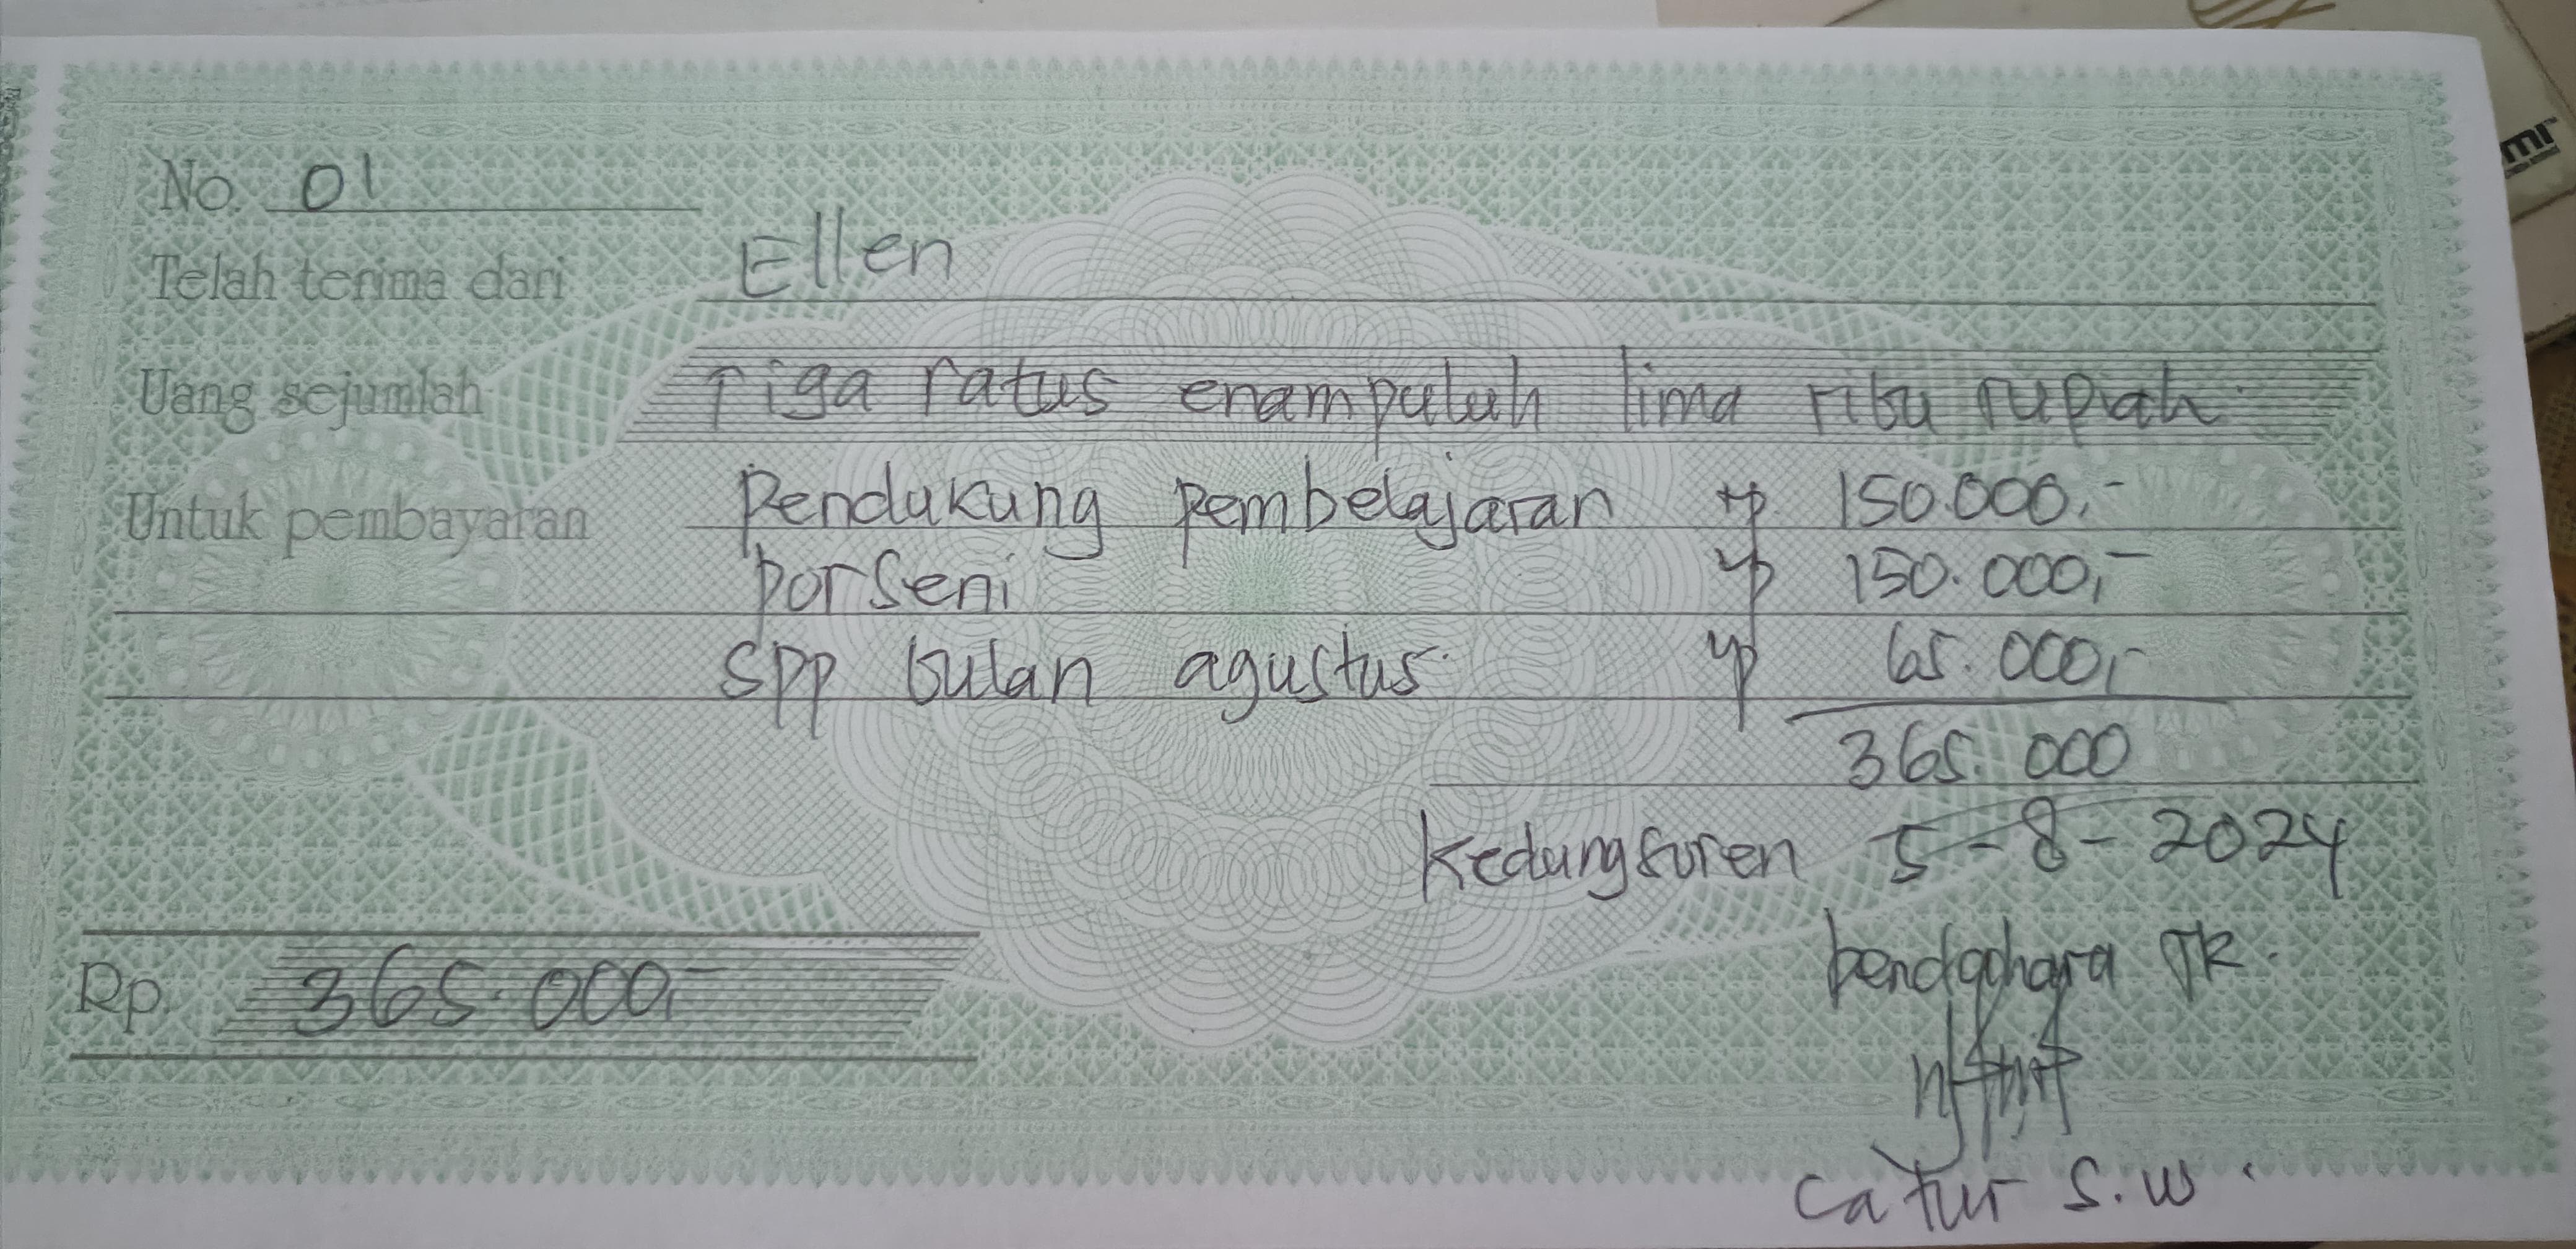 No. 01
Telah terima dari Ellen
Uang sejumlah Tiga ratus enampuluh lima ribu rupiah
Untuk pembayaran Pendukung pembelajaran Rp 150.000,-
porseni Rp 150.000,-
SPP bulan agustus Rp 65.000,-
365.000
Kedungsuren 5-8-2024
Rp 365.000,-
bendahara TK.
Catur S.W.